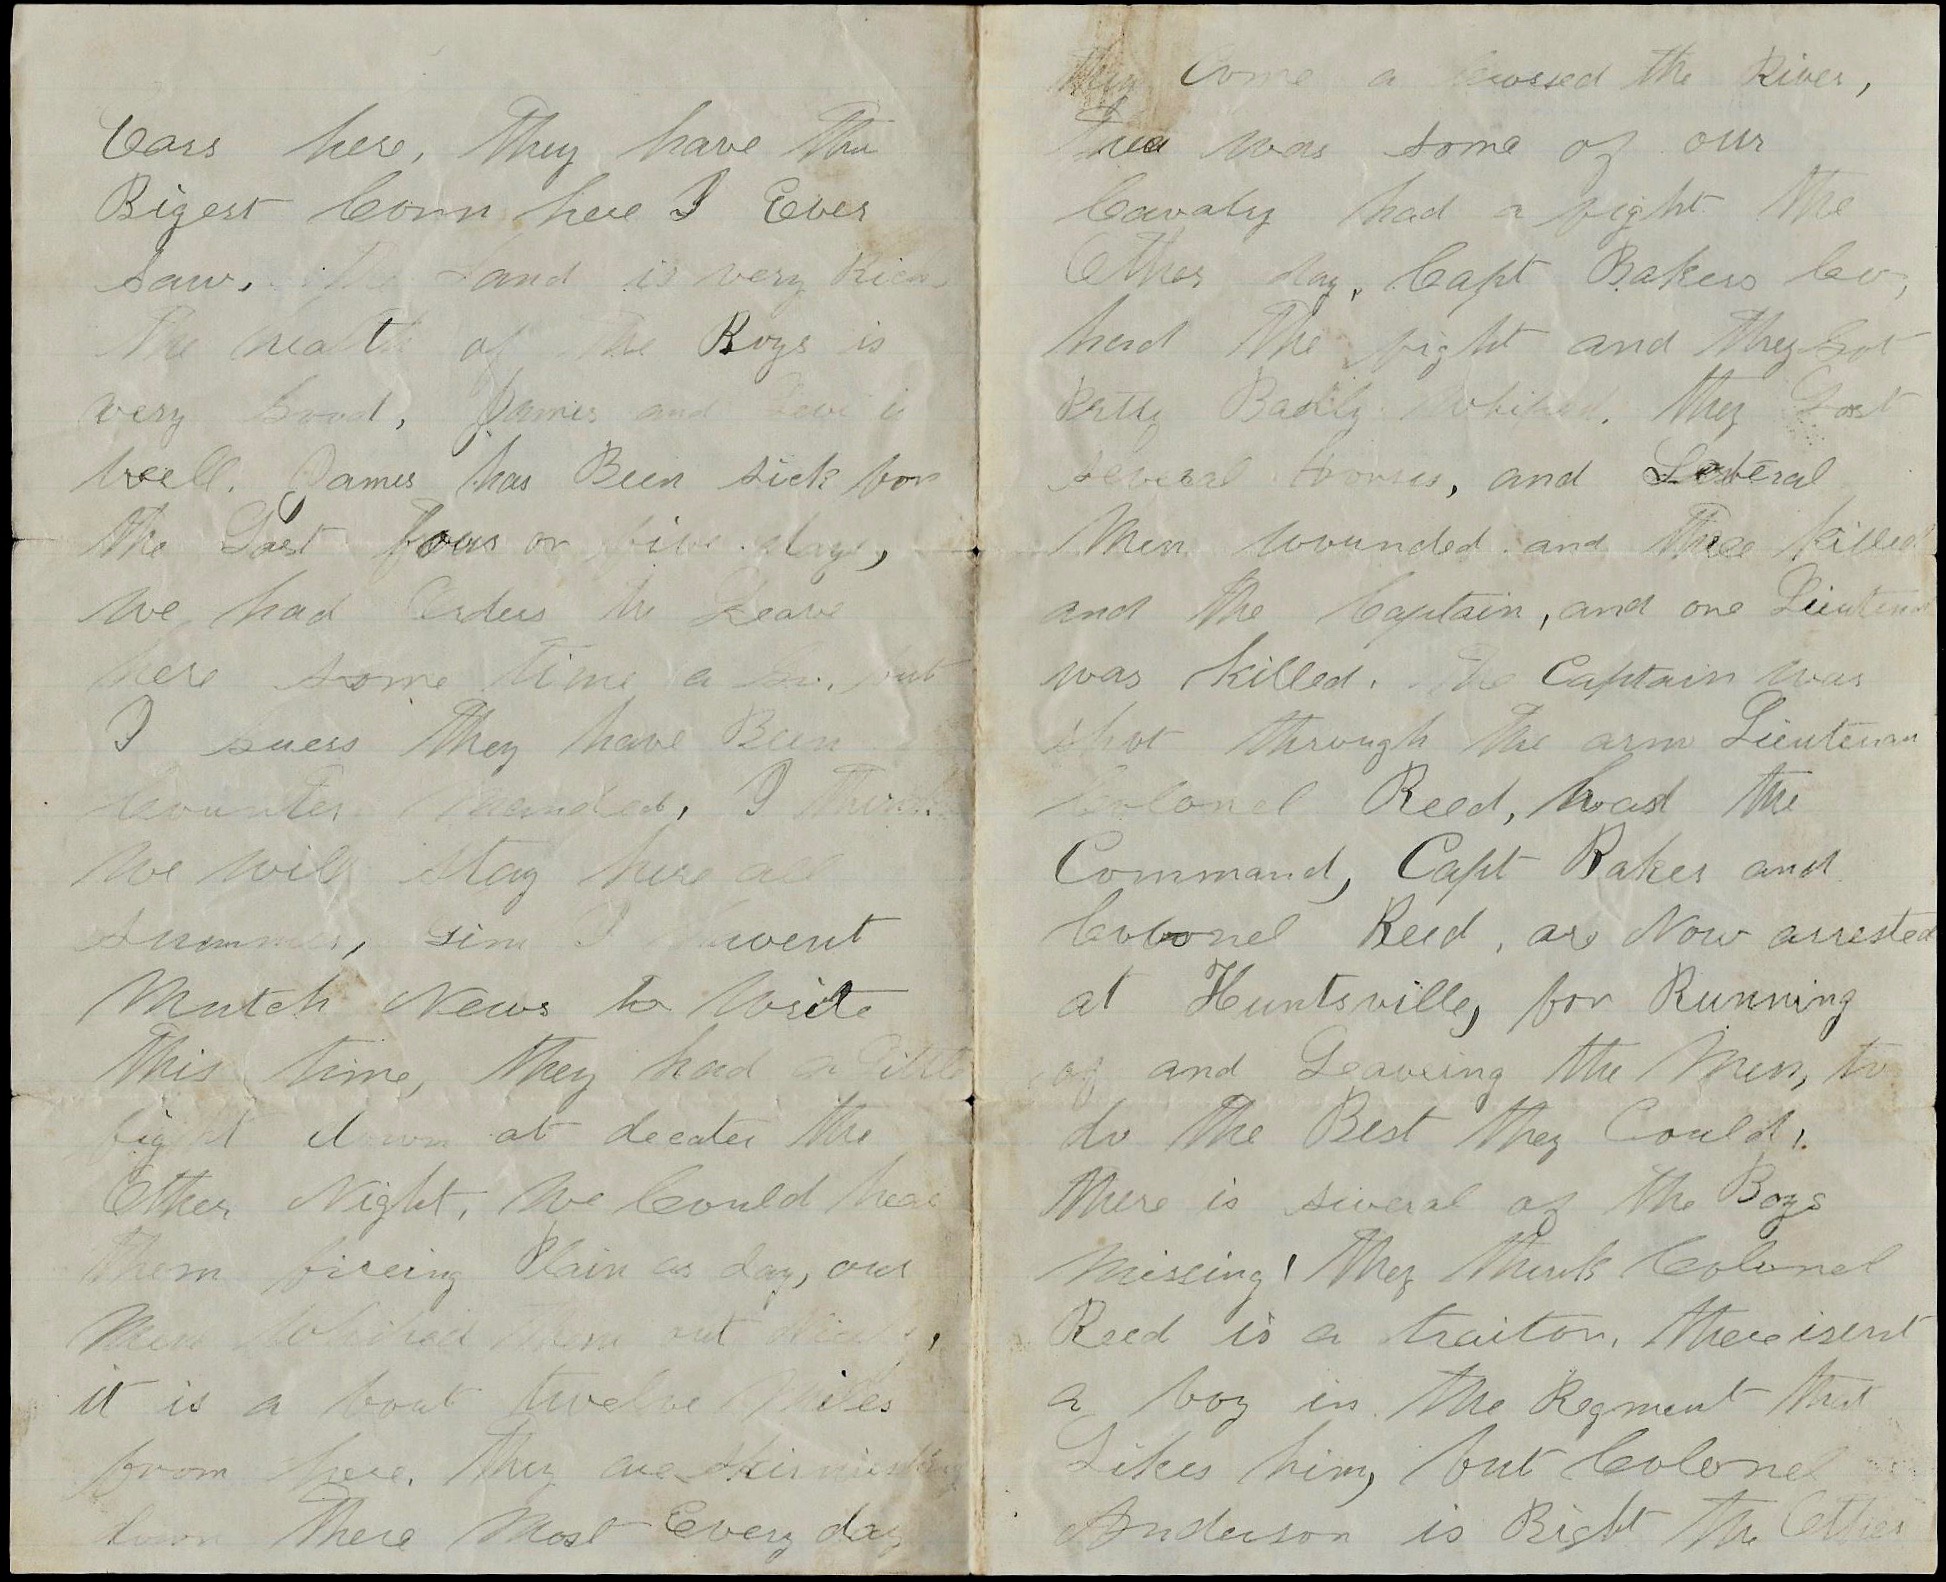 Ears here, They have the
Bigest Corn here I Ever
saw. The Land is very Rich
The health of the Boys is
very Good, James and Levi is
well. James has Been sick for
the Last four or five days,
we had Orders to Leave
here some time a Go. but
I Guess they have Been
Counter Manded, I Think
we will stay here all
summer, Sim I havent
Mutch News to Write
This time, they had a Little
fight down at decater the
Other Night, we Could hear
them fireing Plain as day, our
Men Whiped them out nicely,
it is a bout twelve Miles
from here. They are skirmishing
down There Most Every day
they Come a Crossed the River,
There was some of our
Cavalry had a fight the
Other day, Capt Bakers Co,
had The fight and they Got
Pretty Badly Whiped. they Lost
several horses, and Several
Men wounded and Three killed
and the Captain, and one Lieutenant
was killed. The Captain was
shot through the arm Lieutenant
Colonel Reed, had the
Command, Capt Baker and
Colonel Reed, are Now arrested
at Huntsville, for Running
of and Leaveing the Men, to
do the Best they Could,
there is several of the Boys
Missing! They think Colonel
Reed is a traitor, there isent
a boy in the Regment that
Likes him, but Colonel
Anderson is Right the Other